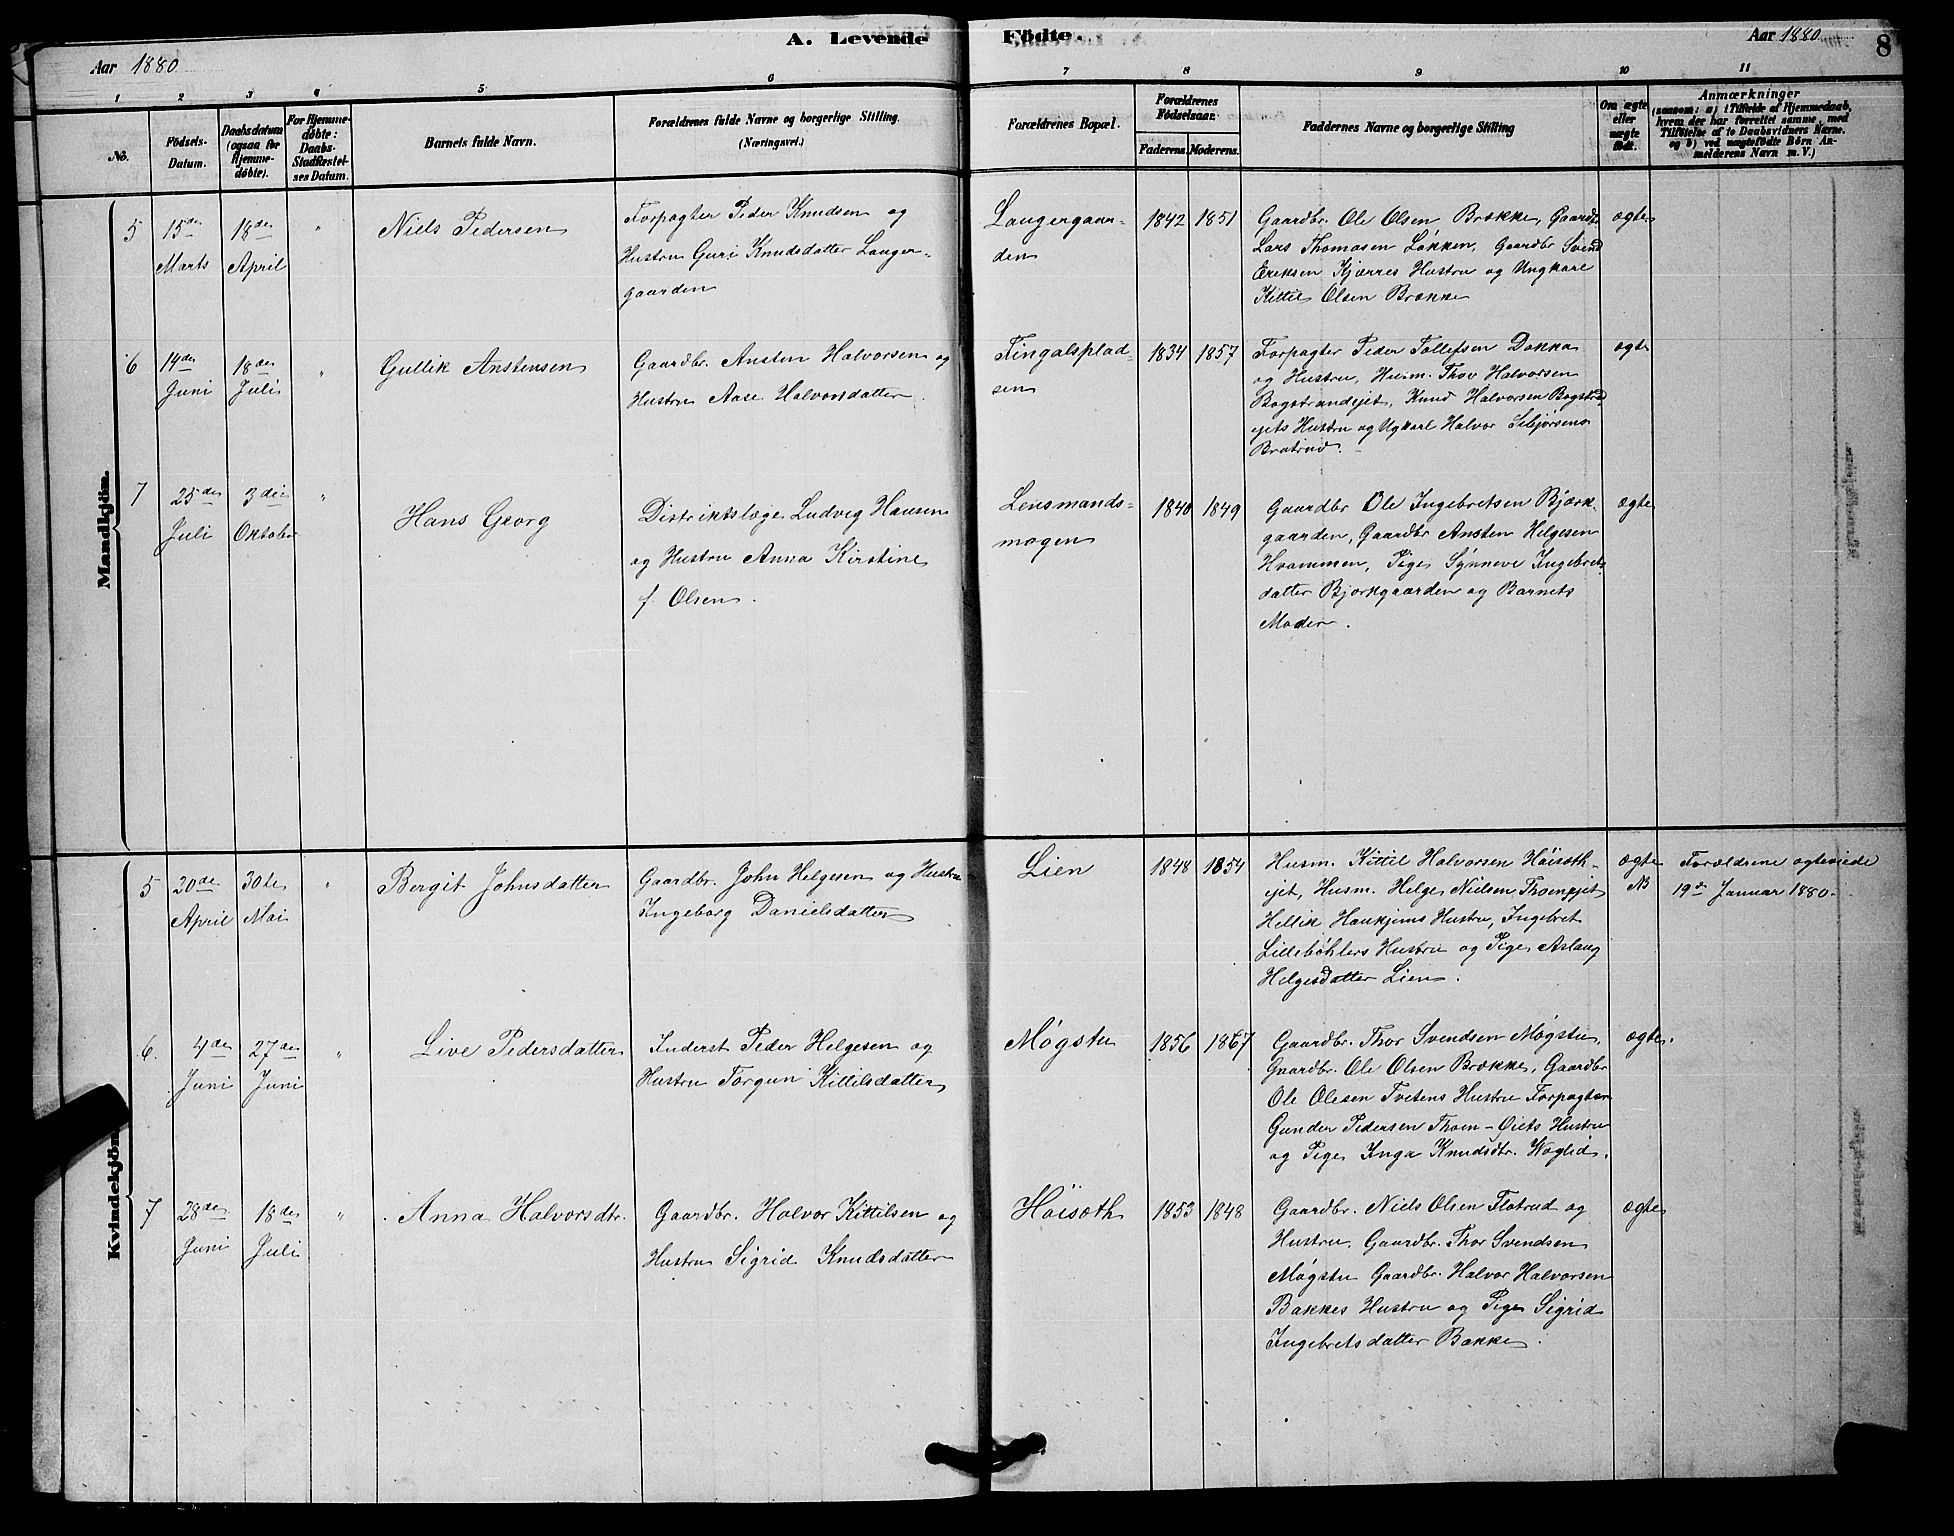 A. Levende Födte.
Aar 1880
Aar 1880
8
1 2 3 4 5 6 7 8 9 10 11
No.
Födsels-
Datum.
Daabsdatum
(ogsaa for
Hjemme-
döbte).
For Hjemme-
döbte:
Daabs-
Stadfæstel-
ses Datum.
Barnets fulde Navn.
Forældrenes fulde Navne og borgerlige Stilling.
(Næringsvei.)
Forældrenes Bopæl.
Forældrenes
Födselsaar.
Faderens. Moderens.
Faddernes Navne og borgerlige Stilling
Om ægte
eller
uægte
født.
Anmærkninger
(saasom: a) i Tilfælde af Hjemmedaab,
hvem der har forrettet samme, med
Tilföielse af to Daabsvidners Navne.
og b) ved uægtefödte Börn An-
melderens Navn m. V.)
Mandkjön.
5
15de
Marts
18de
April
"
Niels Pedersen
Forpagter Peder Knudsen og
Hustru Guri Knudsdatter Langer-
gaarden
Langergaar-
den
1842 1851
Gaardbr. Ole Olsen Brække, Gaardb.
Lars Thomasen Løkken, Gaardbr Svend
Eriksen Kjærres Hustru og Ungkarl
Kittil Olsen Brække
ægte
6
14de
Juni
18de
Juli
"
Gullik Anstensen
Gaardbr. Ansten Halvorsen og
Hustru Aase Halvorsdatter.
Fingalsplad-
sen
1834 1857
Forpagter Peder Tollefsen Dokka
og Hustru, Husm. Thov Halvorsen
Bogstrandejet, Knud Halvorsen Bogstrd
ejets Hustru og Ugkarl Halvor Sebjørsen
Bratrud.
ægte
7
25de
Juli
3die
Oktober
"
Hans Georg
Distriktslæge Ludvig Hansen
og Hustru Anna Kirstine
f. Olsen.
Lensmands-
mogen
1840 1849
Gaardbr Ole Ingebretsen Bjørk-
gaarden, Gaardbr Ansten Helgesen
Hvammen, Pige Synneve Ingebrets-
datter Bjørkgaarden og Barnets
Moder.
ægte
Kvindekjön.
5
20de
April
30te
Mai
"
Bergit Johnsdatter
Gaardbr. John Helgesen og Hustru
Ingeborg Danielsdatter
Lien
1848 1854
Husm. Kittil Halvorsen Höisæth-
ejet, Husm. Helge Nielsen Thoenejet
Hellik Haukjems Hustru, Ingebret
Lillebøhlers Hustru og Pige Aslaug
Helgesdatter Lien.
ægte
NB
Forældrene ægteviede
19de Januar 1880.
6.
4de
Juni
27de
Juni
"
Live Pedersdatter
Inderst Peder Helgesen og
Hustru Torgun Kittilsdatter
Møgstu
1856 1867
Gaardbr. Thor Svendsen Møgstu,
Gaardbr. Ole Olsen Brække, Gaardbr
Ole Olesen Tvetens Hustru Forpagter
Gunder Pedersen Thoen-Eiets Hustru
og Pige Inga Knudsdtr. Woglid.
ægte.
7
28de
Juni
18de
Juli
"
Anna Halvorsdtr.
Gaardbr. Halvor Kittilsen og
Hustru Sigrid Knudsdatter
Höisæth
1853 1848
Gaardbr. Niels Olsen Flatrud og
Hustru. Gaardbr. Thor Svendsen
Møgstu Gaardbr. Halvor Halvorsen
Bakkes Hustru og Pige Sigrid
Ingebretsdatter Bakke.
ægte